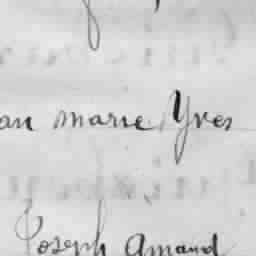 an marie Yves
Joseph Amand